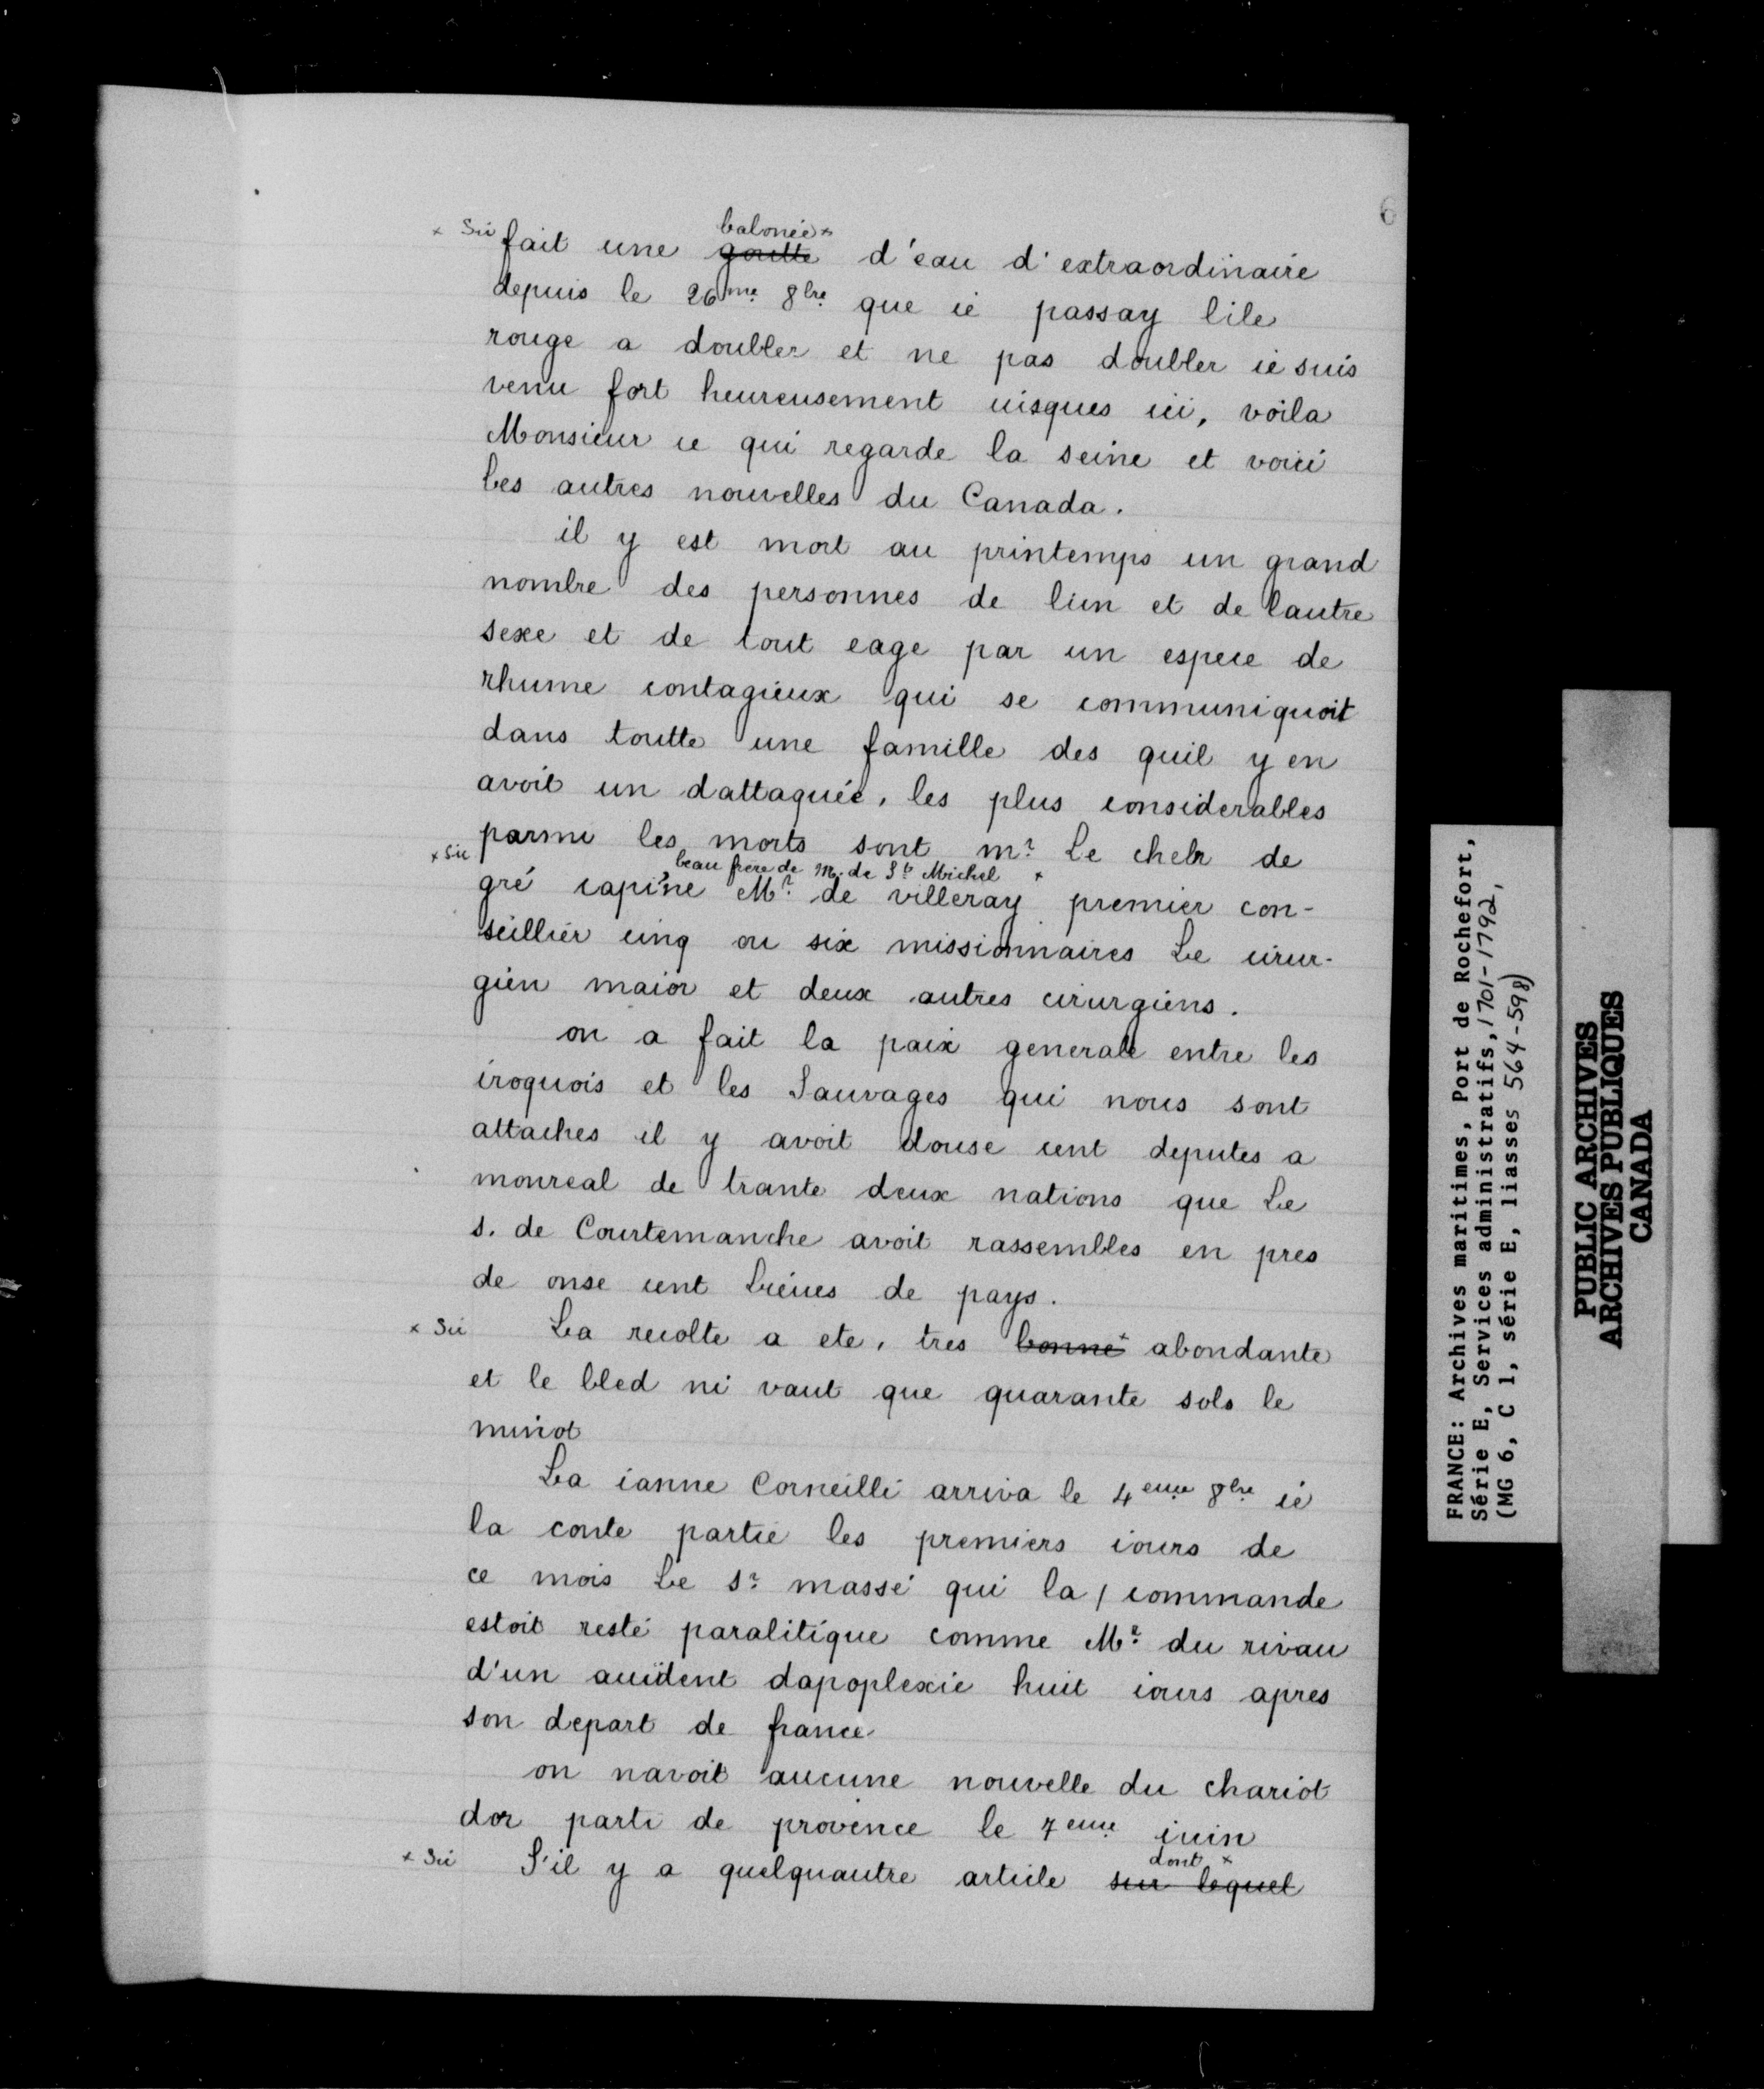 6
balonée ×
× Sic fait une ~~goutte~~ d'eau d'extraordinaire
depuis le 26me 8bre que ie passay lile
rouge a doubler et ne pas doubler ie suis
venu fort heureusement iusques ici, voila
Monsieur ce qui regarde la seine et voici
les autres nouvelles du Canada.
il y est mort au printemps un grand
nombre des personnes de lun et de lautre
sexe et de tout eage par un espece de
rhume contagieux qui se communiquoit
dans toutte une famille des quil y en
avoit un dattaquée, les plus considerables
parmi les morts sont mr Le cheler de
× Sic beau frere de M. de St Michel ×
gré capine Mr de villeray premier con-
seillier cinq ou six missionnaires Le cirur-
gien maior et deux autres cirurgiens.
on a fait la paix generale entre les
iroquois et les Sauvages qui nous sont
attaches il y avoit douse cent deputes a
monreal de trante deux nations que Le
s. de Courtemanche avoit rassembles en pres
de onse cent Lieues de pays.
× Sic La recolte a ete, tres ~~bonne~~ × abondante
et le bled ni vaut que quarante sols le
minot
La ianne Corneilli arriva le 4eme 8bre ié
la conte partie les premiers iours de
ce mois Le sr massé qui la / commande
estoit resté paralitique comme Mr du rivau
d'un accident dapoplexie huit iours apres
son depart de france
on navoit aucune nouvelle du chariot
dor parti de provence le 7eme iuin
dont ×
× Sic S'il y a quelquautre article ~~sur lequel~~
FRANCE: Archives maritimes, Port de Rochefort,
Série E, Services administratifs, 1701-1792,
(MG 6, C 1, série E, liasses 564-598)
PUBLIC ARCHIVES
ARCHIVES PUBLIQUES
CANADA